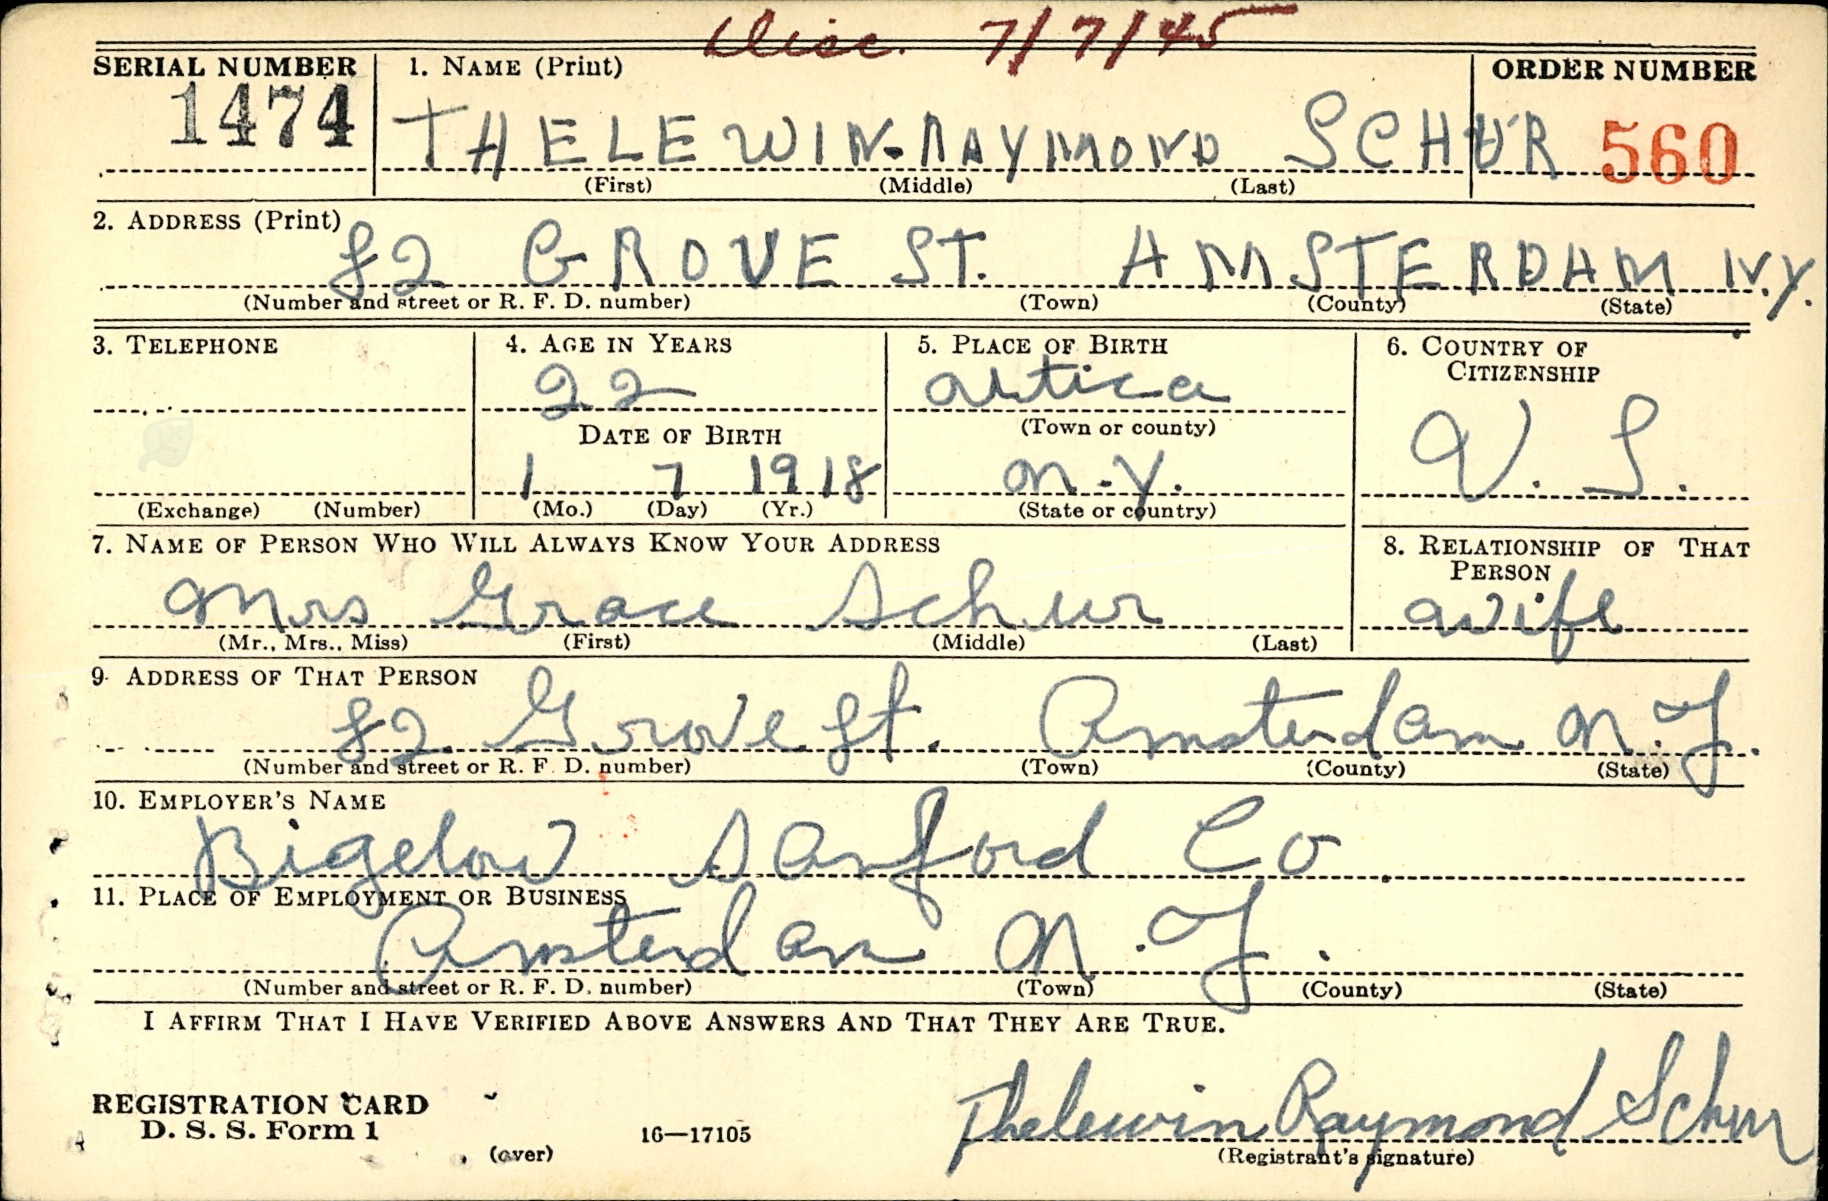 Disc. 7/7/45
SERIAL NUMBER 1. NAME (Print) ORDER NUMBER
1474 THELEWIN-RAYMOND SCHUR 560
(First) (Middle) (Last)
2. ADDRESS (Print)
82 GROVE ST. AMSTERDAM N.Y.
(Number and street or R. F. D. number) (Town) (County) (State)
3. TELEPHONE 4. AGE IN YEARS 5. PLACE OF BIRTH 6. COUNTRY OF CITIZENSHIP
22 Attica
DATE OF BIRTH (Town or county) U. S.
1 7 1918 N.Y.
(Exchange) (Number) (Mo.) (Day) (Yr.) (State or country)
7. NAME OF PERSON WHO WILL ALWAYS KNOW YOUR ADDRESS 8. RELATIONSHIP OF THAT PERSON
Mrs Grace Schur wife
(Mr., Mrs., Miss) (First) (Middle) (Last)
9. ADDRESS OF THAT PERSON
82 Grove St. Amsterdam N.Y.
(Number and street or R. F. D. number) (Town) (County) (State)
10. EMPLOYER'S NAME
Bigelow Sanford Co.
11. PLACE OF EMPLOYMENT OR BUSINESS
Amsterdam N.Y.
(Number and street or R. F. D. number) (Town) (County) (State)
I AFFIRM THAT I HAVE VERIFIED ABOVE ANSWERS AND THAT THEY ARE TRUE.
REGISTRATION CARD
D. S. S. Form 1 16—17105 Thelewin Raymond Schur
(over) (Registrant's signature)